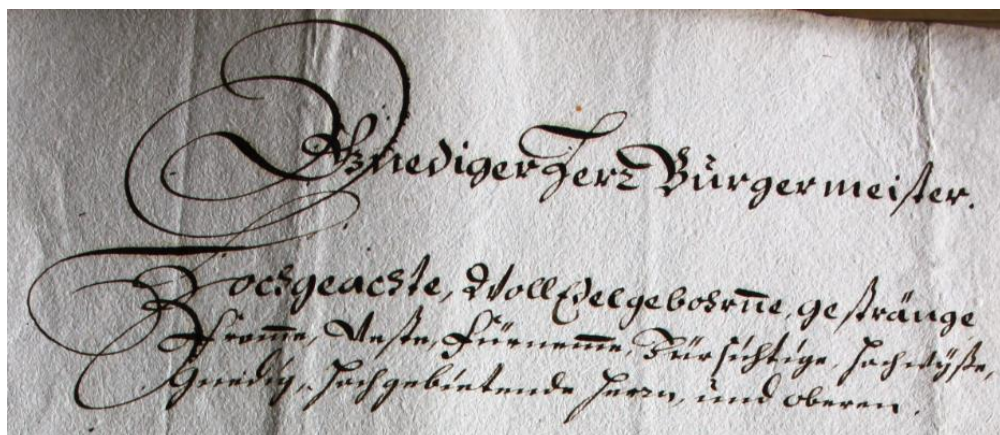 Gnediger Herr Bürgermeister.
Hochgeachte, Woll Edelgebohrne, gestränge,
Fromme, Veste, Fürnemme, Fürsichtige, hochwÿse,
Gnedig, hochgebietende Herrn, und oberen.